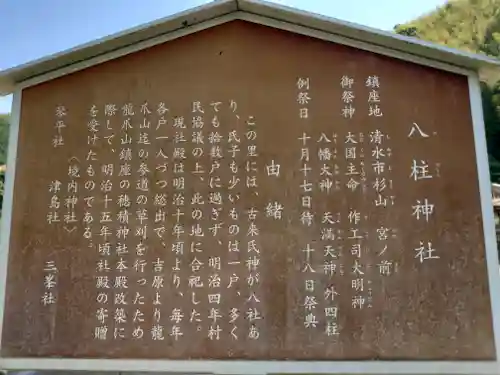 八柱神社
鎮座地 清水市杉山 宮ノ前
御祭神 大国主命 作工司大明神
八幡大神 天満天神 外四柱
例祭日 十月十七日待 十八日祭典
由緒
この里には、古来氏神が八社あ
り、氏子も少いものは一戸、多く
ても拾数戸に過ぎず、明治四年村
民協議の上、此の地に合祀した。
現社殿は明治十年頃より、毎年
各戸一人づつ総出で、吉原より龍
爪山迄の参道の草刈を行ったため
龍爪山鎮座の穂積神社本殿改築に
際して、明治十五年頃社殿の寄贈
を受けたものである。
〈境内神社〉
琴平社 津島社 三峯社